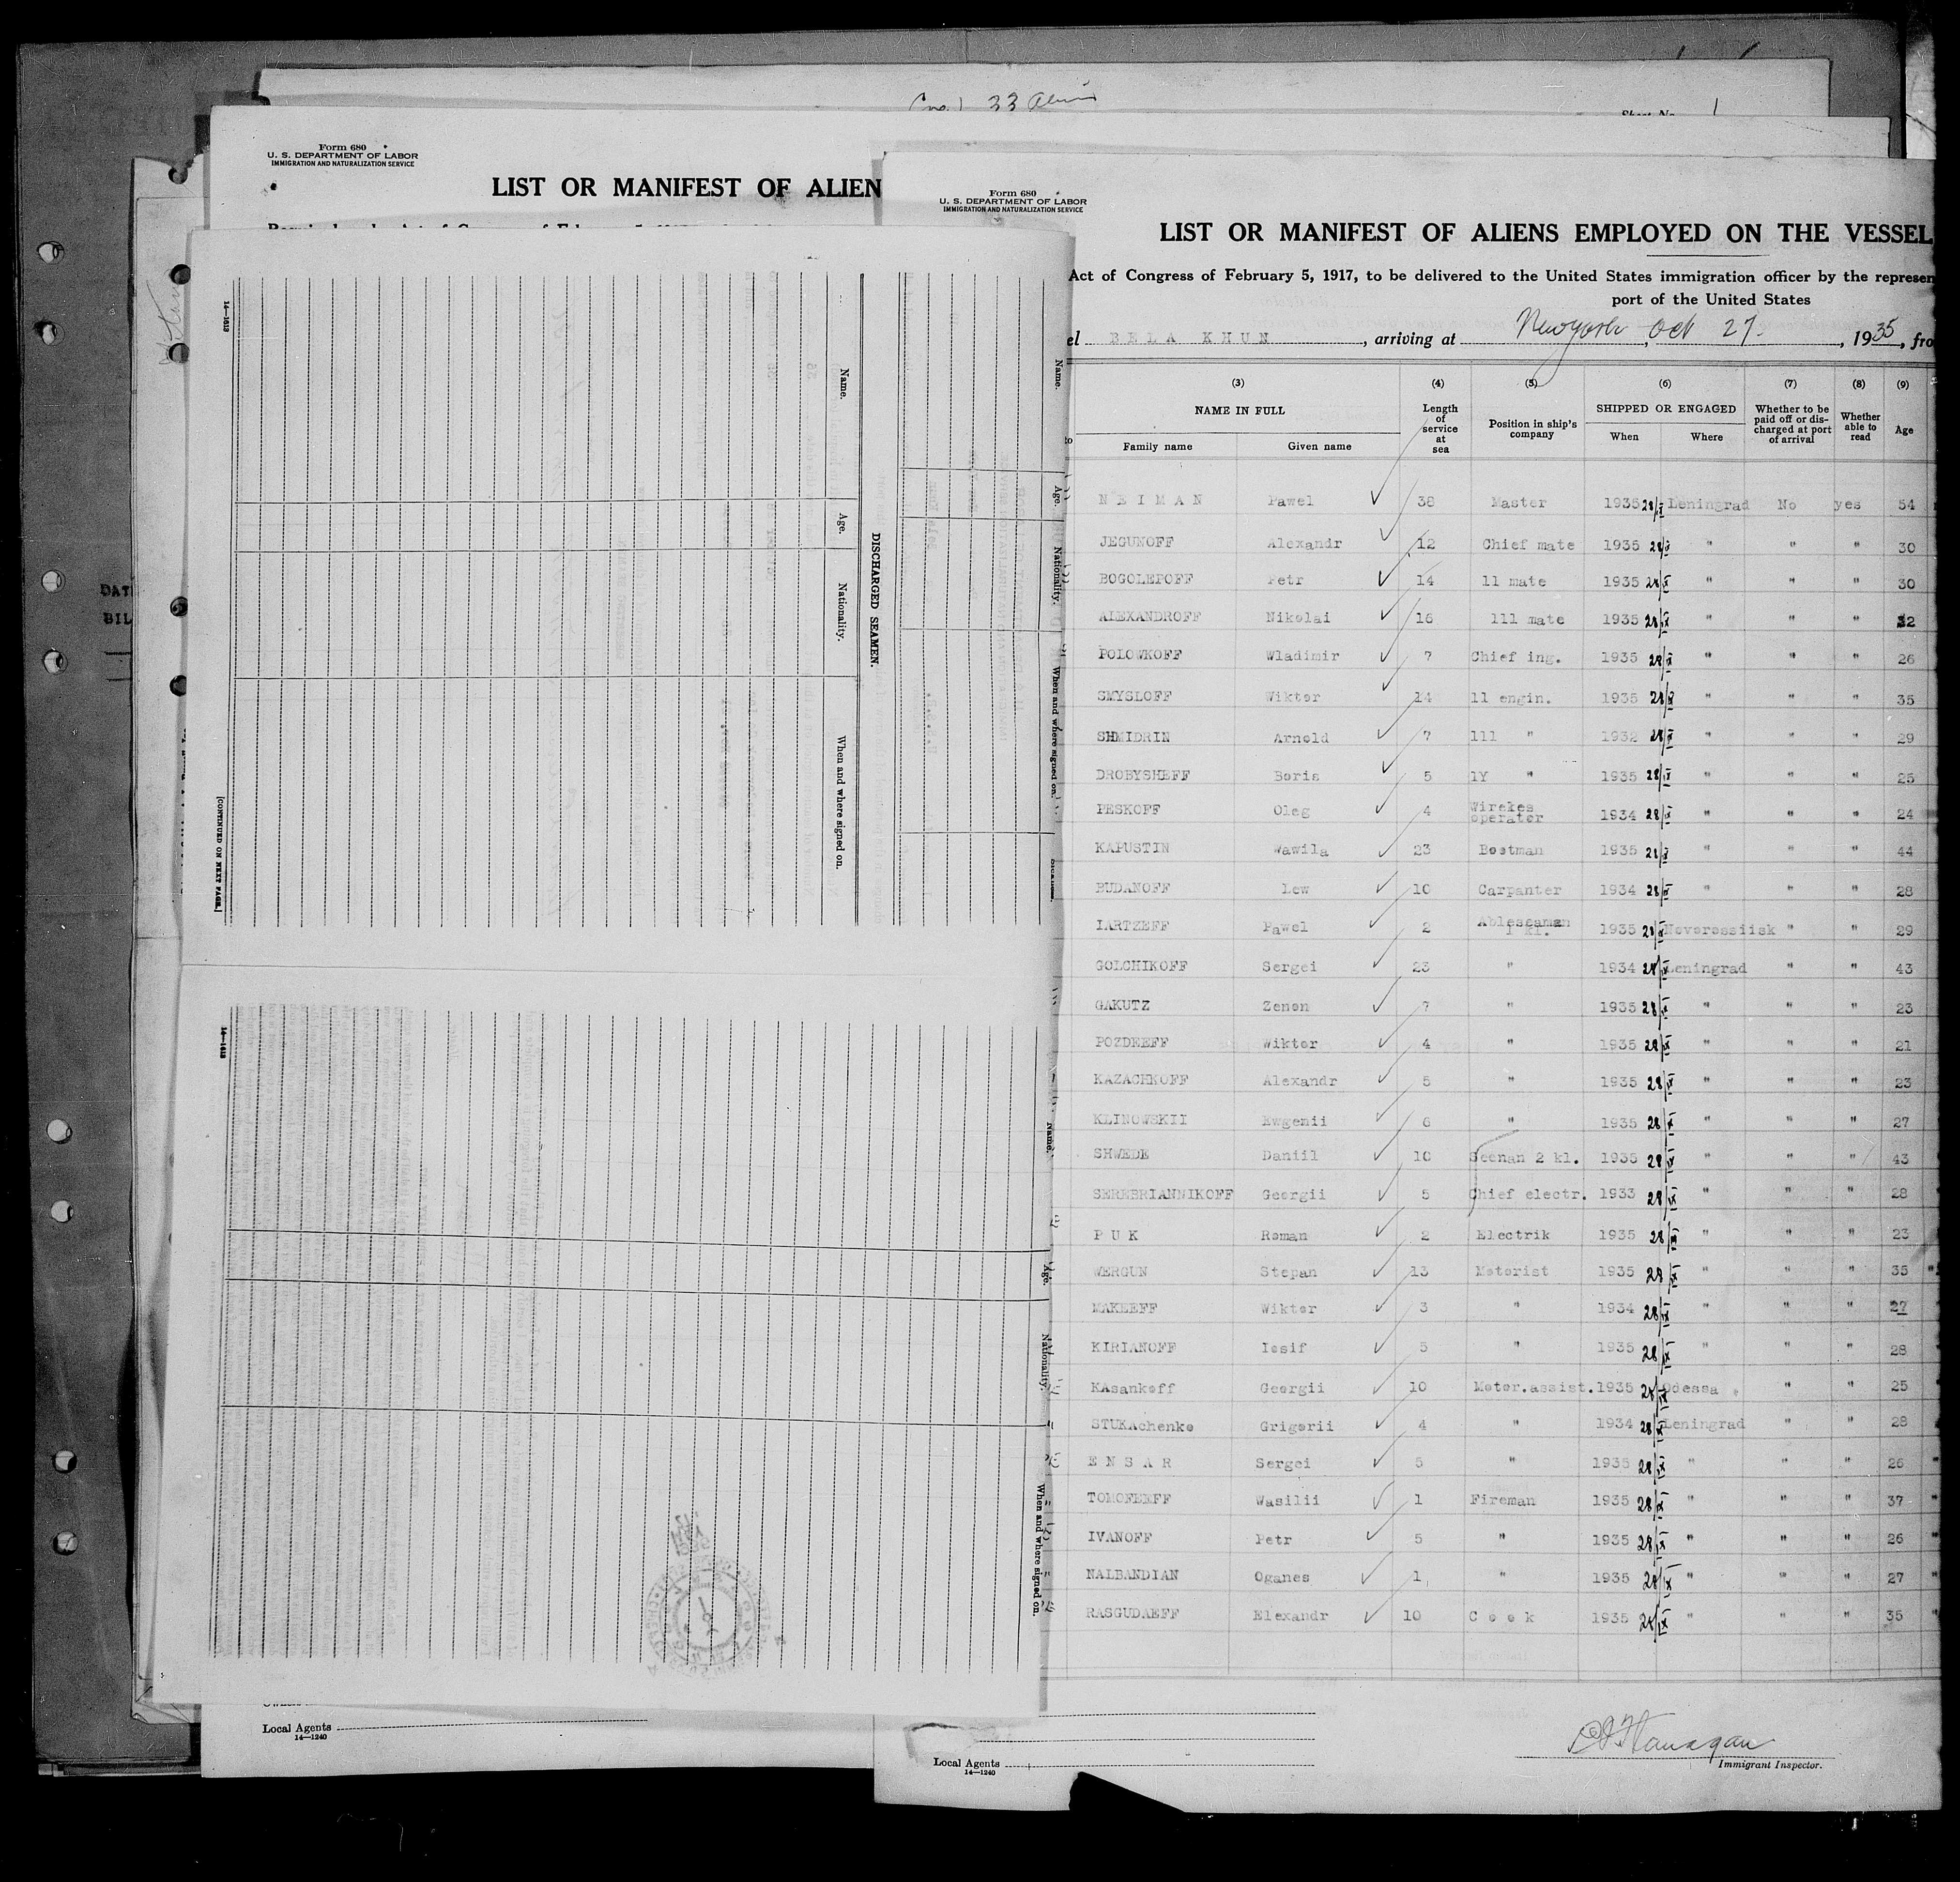 Cree 33 Aliens
Sheet No. 1
Form 680
U. S. DEPARTMENT OF LABOR
IMMIGRATION AND NATURALIZATION SERVICE
LIST OR MANIFEST OF ALIEN
Form 680
U. S. DEPARTMENT OF LABOR
IMMIGRATION AND NATURALIZATION SERVICE
LIST OR MANIFEST OF ALIENS EMPLOYED ON THE VESSEL
Act of Congress of February 5, 1917, to be delivered to the United States immigration officer by the represen
port of the United States
el BELA KHUN, arriving at New York, Oct 27., 1935, fro
(3) (4) (5) (6) (7) (8) (9)
NAME IN FULL Length of service at sea Position in ship's company SHIPPED OR ENGAGED Whether to be paid off or discharged at port of arrival Whether able to read Age
Family name Given name When Where
NEIMAN Pawel 38 Master 1935 28/IX Leningrad No yes 54
JEGUNOFF Alexandr 12 Chief mate 1935 28/IX " " " 30
BOGOLEPOFF Petr 14 11 mate 1935 28/IX " " " 30
ALEXANDROFF Nikolai 16 111 mate 1935 28/IX " " " 32
POLOWKOFF Wladimir 7 Chief ing. 1935 28/IX " " " 26
SMYSLOFF Wiktor 14 11 engin. 1935 28/IX " " " 35
SHMIDRIN Arnold 7 111 " 1932 28/IX " " " 29
DROBYSHEFF Boris 5 1Y " 1935 28/IX " " " 25
PESKOFF Oleg 4 Wirekes operator 1934 28/IX " " " 24
KAPUSTIN Wawila 23 Bostman 1935 28/IX " " " 44
BUDANOFF Lew 10 Carpanter 1934 28/IX " " " 28
IARTZEFF Pawel 2 Ableseaman 1 kl. 1935 28/IX Novorossiisk " " 29
GOLCHIKOFF Sergei 23 " 1934 28/IX Leningrad " " 43
GAKUTZ Zenon 7 " 1935 28/IX " " " 23
POZDEEFF Wiktor 4 " 1935 28/IX " " " 21
KAZACHKOFF Alexandr 5 " 1935 28/IX " " " 23
KLINOWSKII Ewgenii 6 " 1935 28/IX " " " 27
SHWEDE Daniil 10 Seenan 2 kl. 1935 28/IX " " " 43
SEREBRIANNIKOFF Georgii 5 Chief electr. 1933 28/IX " " " 28
PUK Roman 2 Electrik 1935 28/IX " " " 23
WERGUN Stepan 13 Motorist 1935 28/IX " " " 35
MAKEEFF Wiktor 3 " 1934 28/IX " " " 27
KIRIANOFF Iosif 5 " 1935 28/IX " " " 28
KAsankoff Georgii 10 Motor.assist. 1935 28/IX Odessa " " 25
STUKAchenko Grigorii 4 " 1934 28/IX Leningrad " " 28
ENSAR Sergei 5 " 1935 28/IX " " " 26
TOMOFEEFF Wasilii 1 Fireman 1935 28/IX " " " 37
IVANOFF Petr 5 " 1935 28/IX " " " 26
NALBANDIAN Oganes 1 " 1935 28/IX " " " 27
RASGUDAEFF Elexandr 10 Cook 1935 28/IX " " " 35
Immigrant Inspector.
Local Agents
14—1240
Local Agents
14—1240
DISCHARGED SEAMEN.
Name. Age. Nationality. When and where signed on.
Name. Age. Nationality. When and where signed on.
Name. Age. Nationality. When and where signed on.
14—1613
[CONTINUED ON NEXT PAGE.]
14—1613